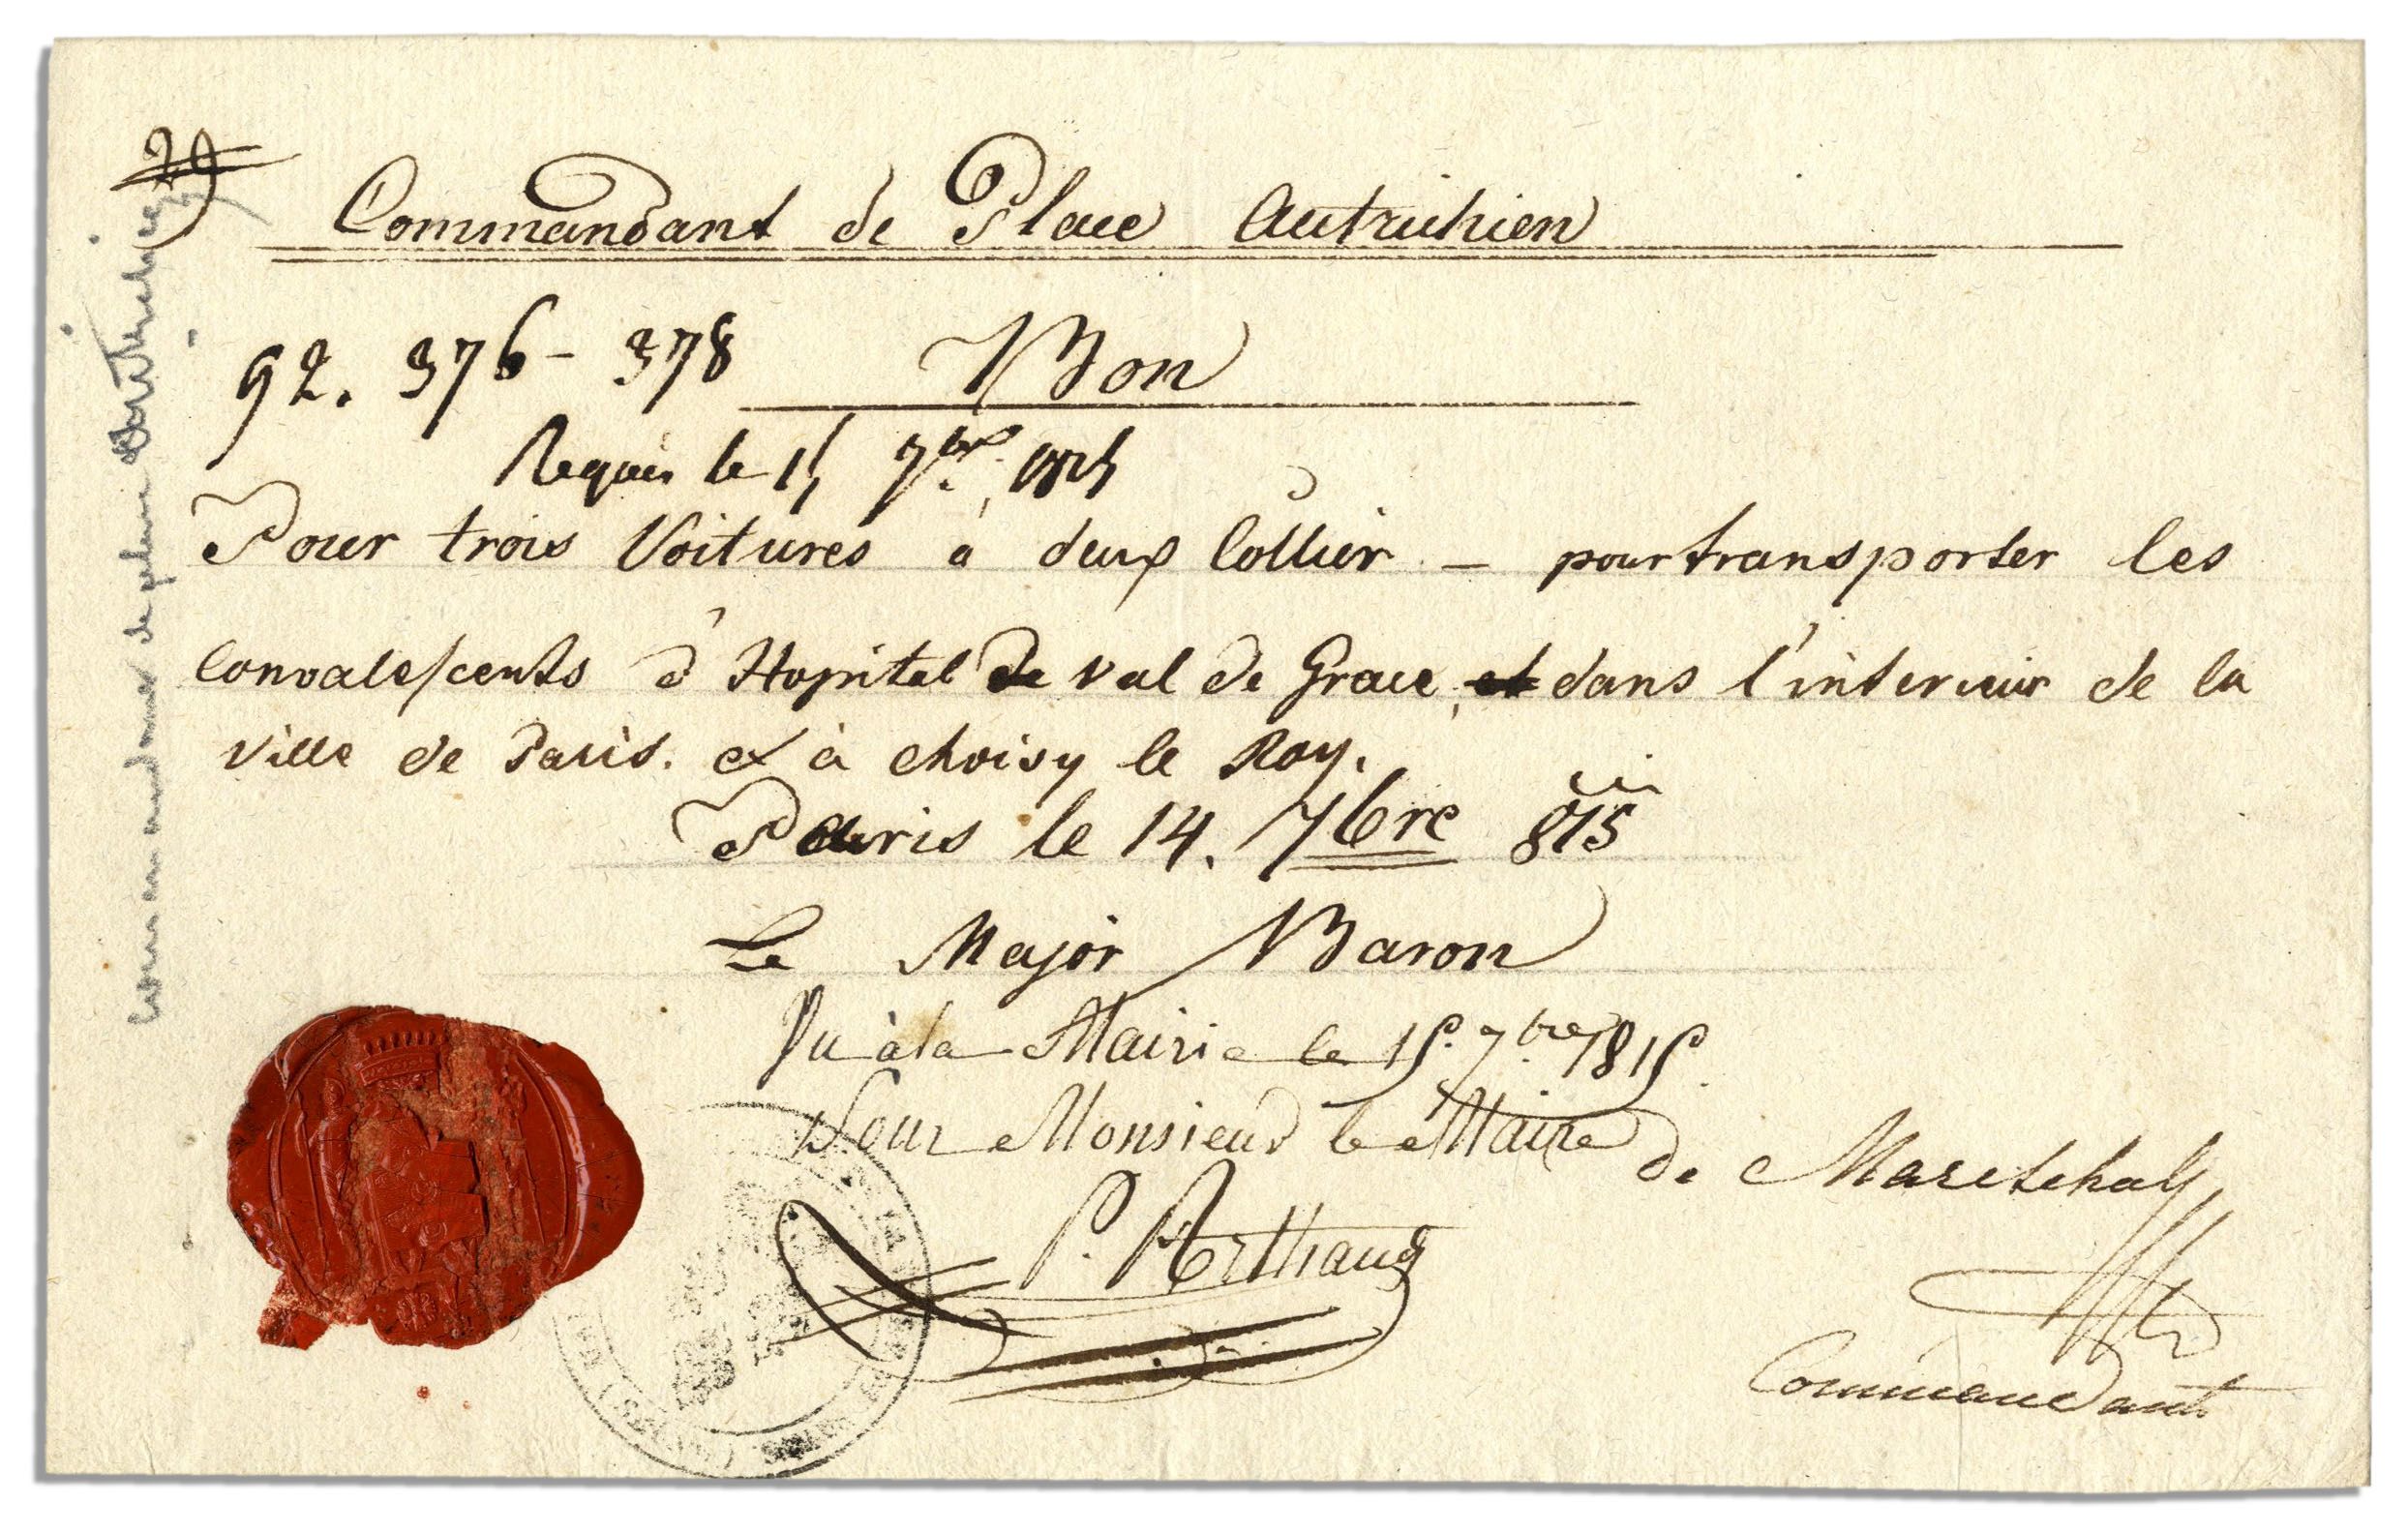 29
Commandant de Place Autrichien
92. 376 - 378 Bon
Requis le 15 7bre 1815
Pour trois Voitures a deux Collier - pour transporter les
Convalescents d'Hopital de Val de Grace, et dans l'interieur de la
Ville de Paris. et à choisy le Roy.
Paris le 14. 7bre 815
Le Major Baron
Vu à la Mairie le 15. 7bre 1815.
Pour Monsieur le Maire
de Maretschall
P. Arthaud
Commandant